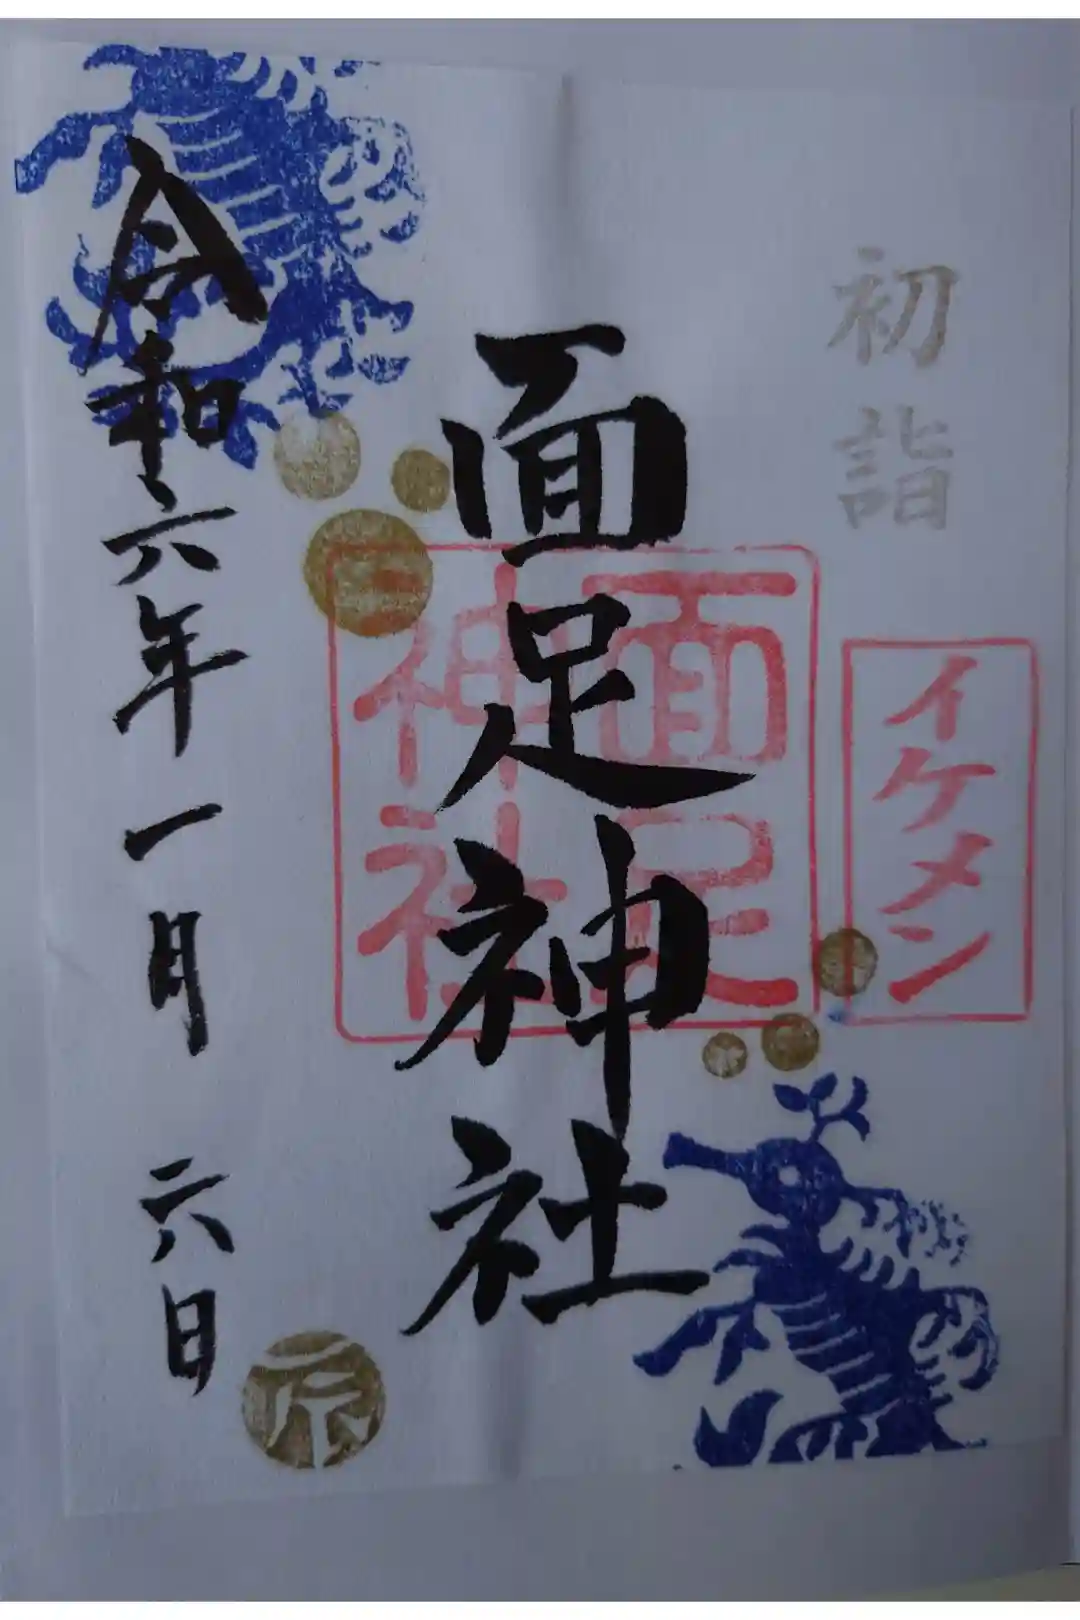 初詣
イケメン
面足神社
面足
神社
令和六年一月六日